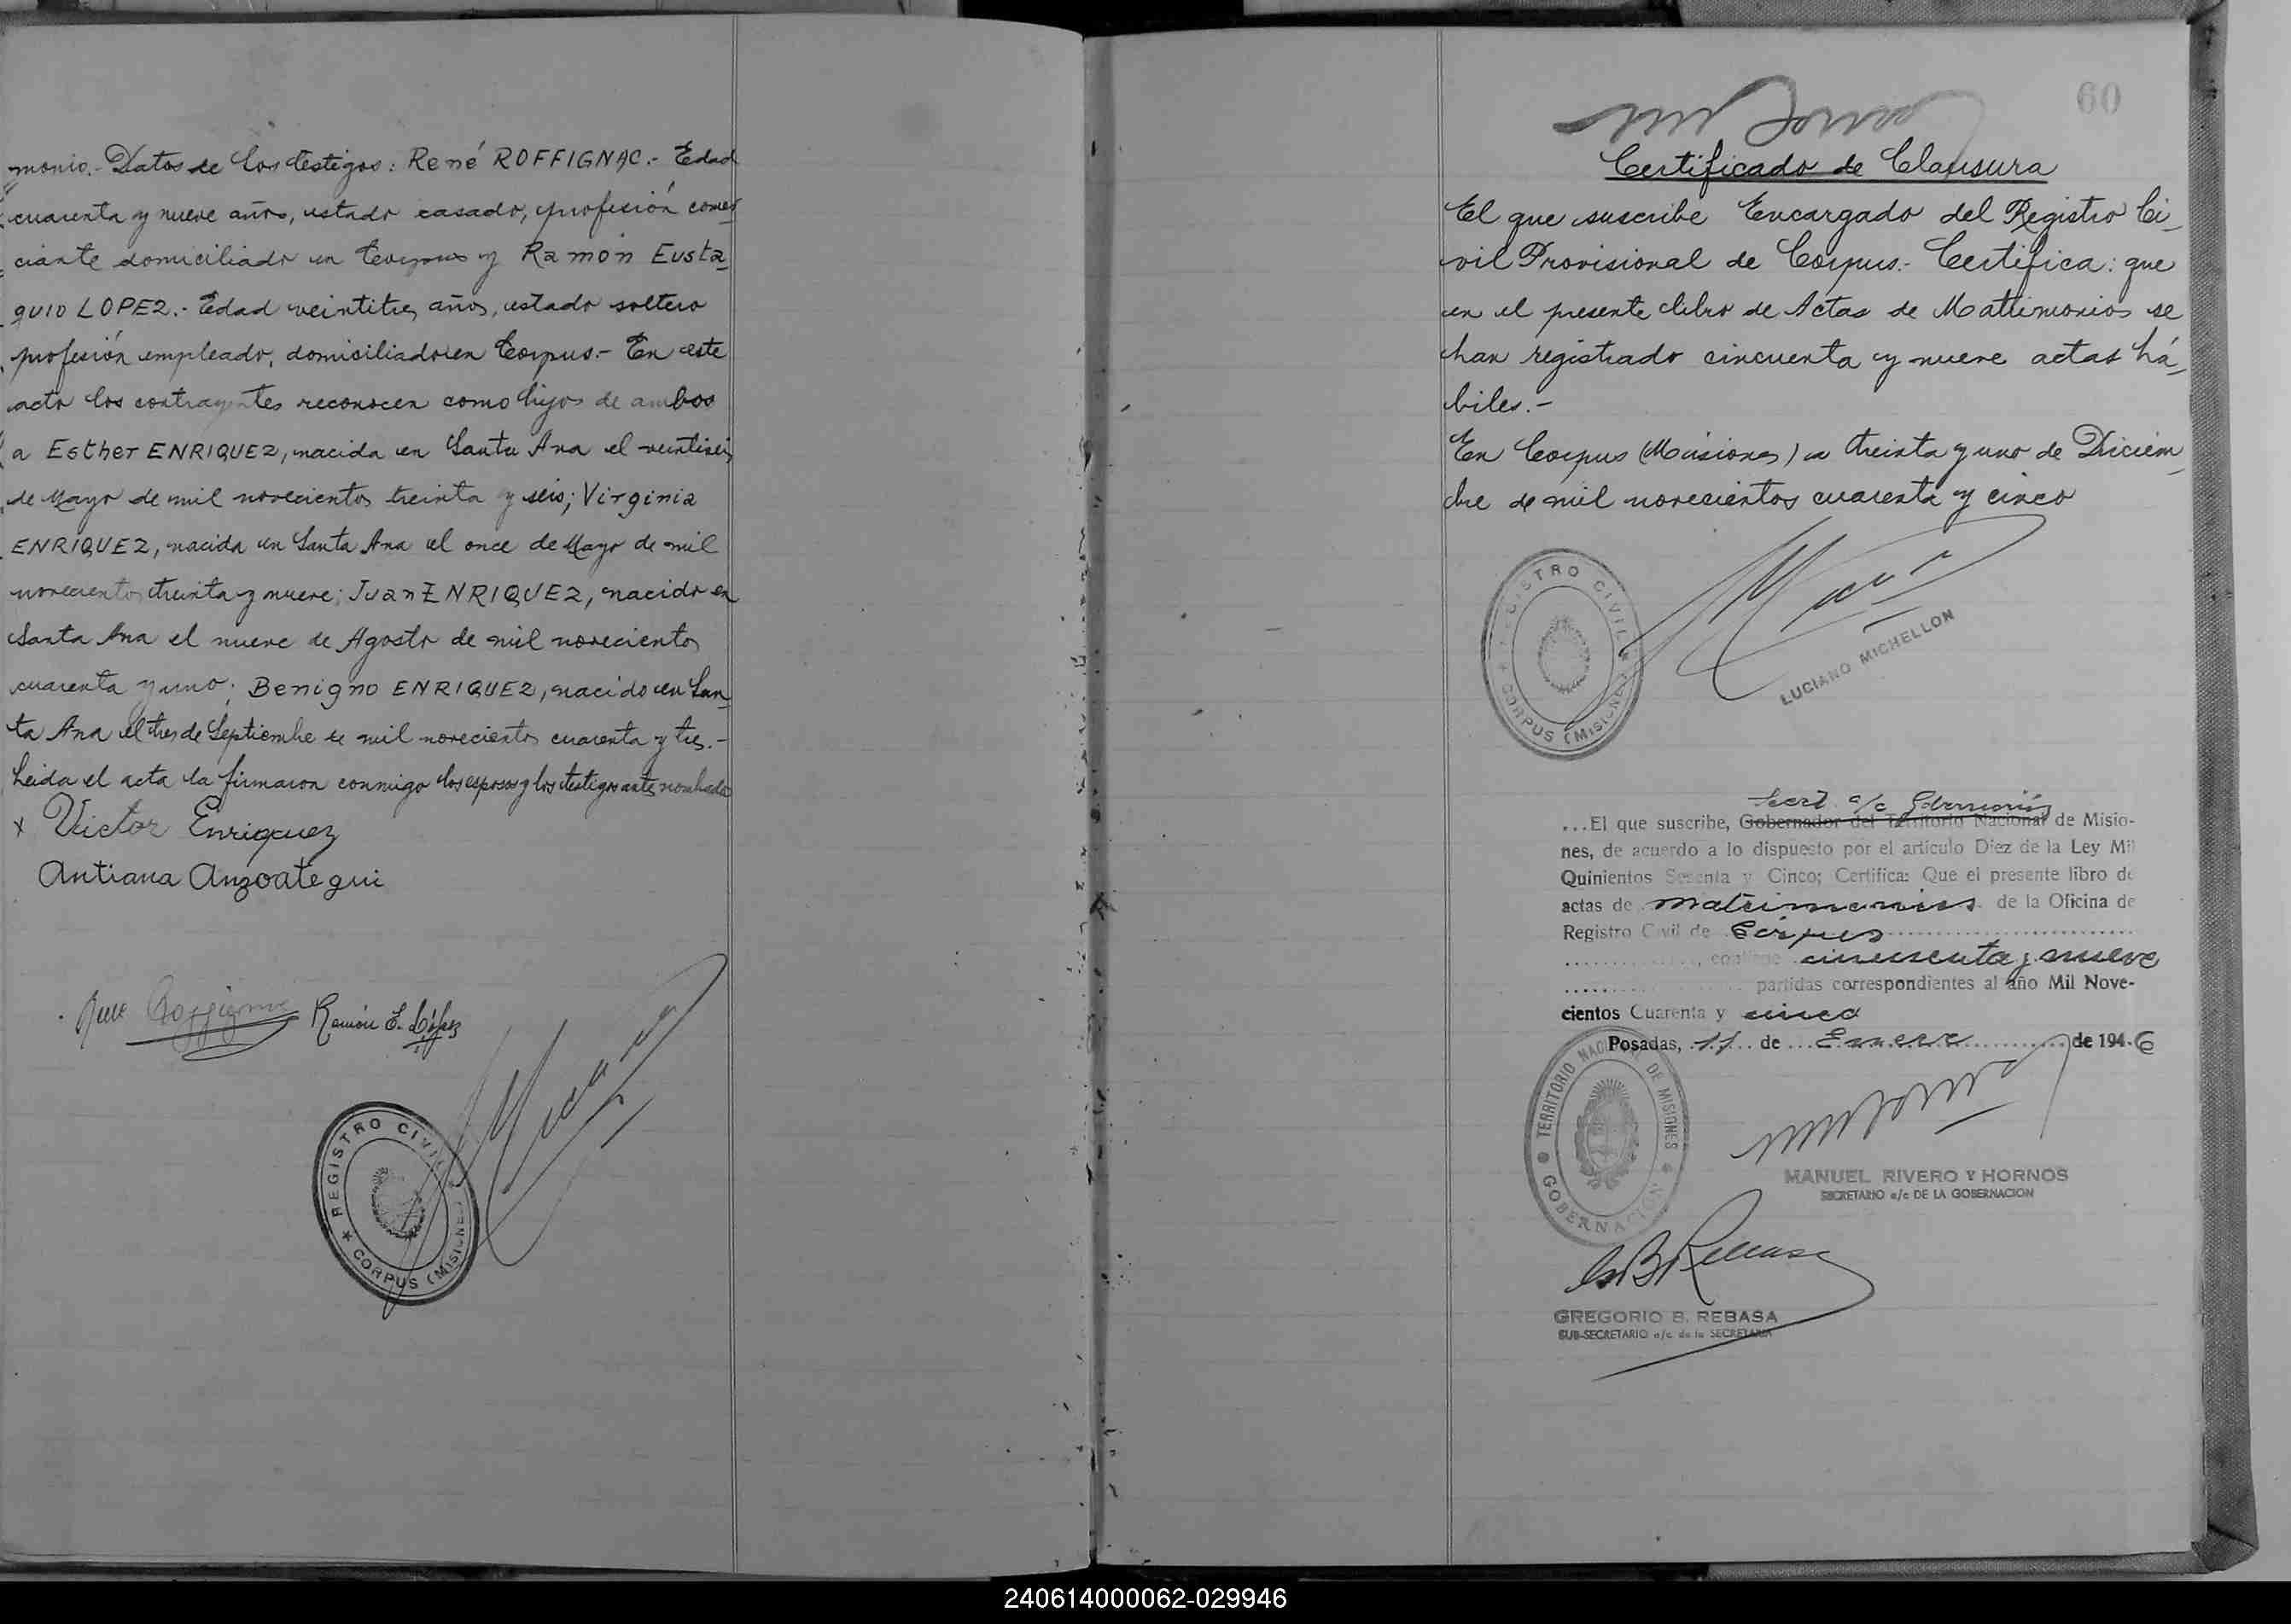 monio.- Datos de los testigos: René ROFFIGNAC.- Edad
cuarenta y nueve años, estado casado, profesión comer
ciante domiciliado en Corpus y Ramón Eusta
quio LOPEZ.- Edad veintitres años, estado soltero
profesión empleado, domiciliado en Corpus.- En este
acto los contrayentes reconocen como hijos de ambos
a Esther ENRIQUEZ, nacida en Santa Ana el veintiseis
de Mayo de mil novecientos treinta y seis; Virginia
ENRIQUEZ, nacida en Santa Ana el once de Mayo de mil
novecientos treinta y nueve; Juan ENRIQUEZ, nacido en
Santa Ana el nueve de Agosto de mil novecientos
cuarenta y uno; Benigno ENRIQUEZ, nacido en San
ta Ana el tres de Septiembre de mil novecientos cuarenta y tres.-
Leida el acta la firmaron conmigo los esposos y los testigos antes nombrados
x Victor Enriquez
Antiana Anzoategui
Rene Roffignac Ramón E. López
REGISTRO CIVIL
CORPUS (MISIONES)
60
Certificado de Clausura
El que suscribe Encargado del Registro Ci-
vil Provisional de Corpus.- Certifica: que
en el presente libro de Actas de Matrimonios se
han registrado cincuenta y nueve actas há-
biles.-
En Corpus (Misiones) a treinta y uno de Diciem-
bre de mil novecientos cuarenta y cinco
REGISTRO CIVIL
CORPUS (MISIONES)
LUCIANO MICHELLON
Secret. a/c Gobernación
...El que suscribe, Gobernador del Territorio Nacional de Misio-
nes, de acuerdo a lo dispuesto por el artículo Diez de la Ley Mil
Quinientos Sesenta y Cinco; Certifica: Que el presente libro de
actas de matrimonios de la Oficina de
Registro Civil de Corpus
contiene cincuenta y nueve
partidas correspondientes al año Mil Nove-
cientos Cuarenta y cinco
Posadas, 11 de Enero de 1946
TERRITORIO NACIONAL DE MISIONES
GOBERNACION
MANUEL RIVERO Y HORNOS
SECRETARIO a/c DE LA GOBERNACION
GREGORIO B. REBASA
SUB-SECRETARIO a/c. de la SECRETARIA
240614000062-029946